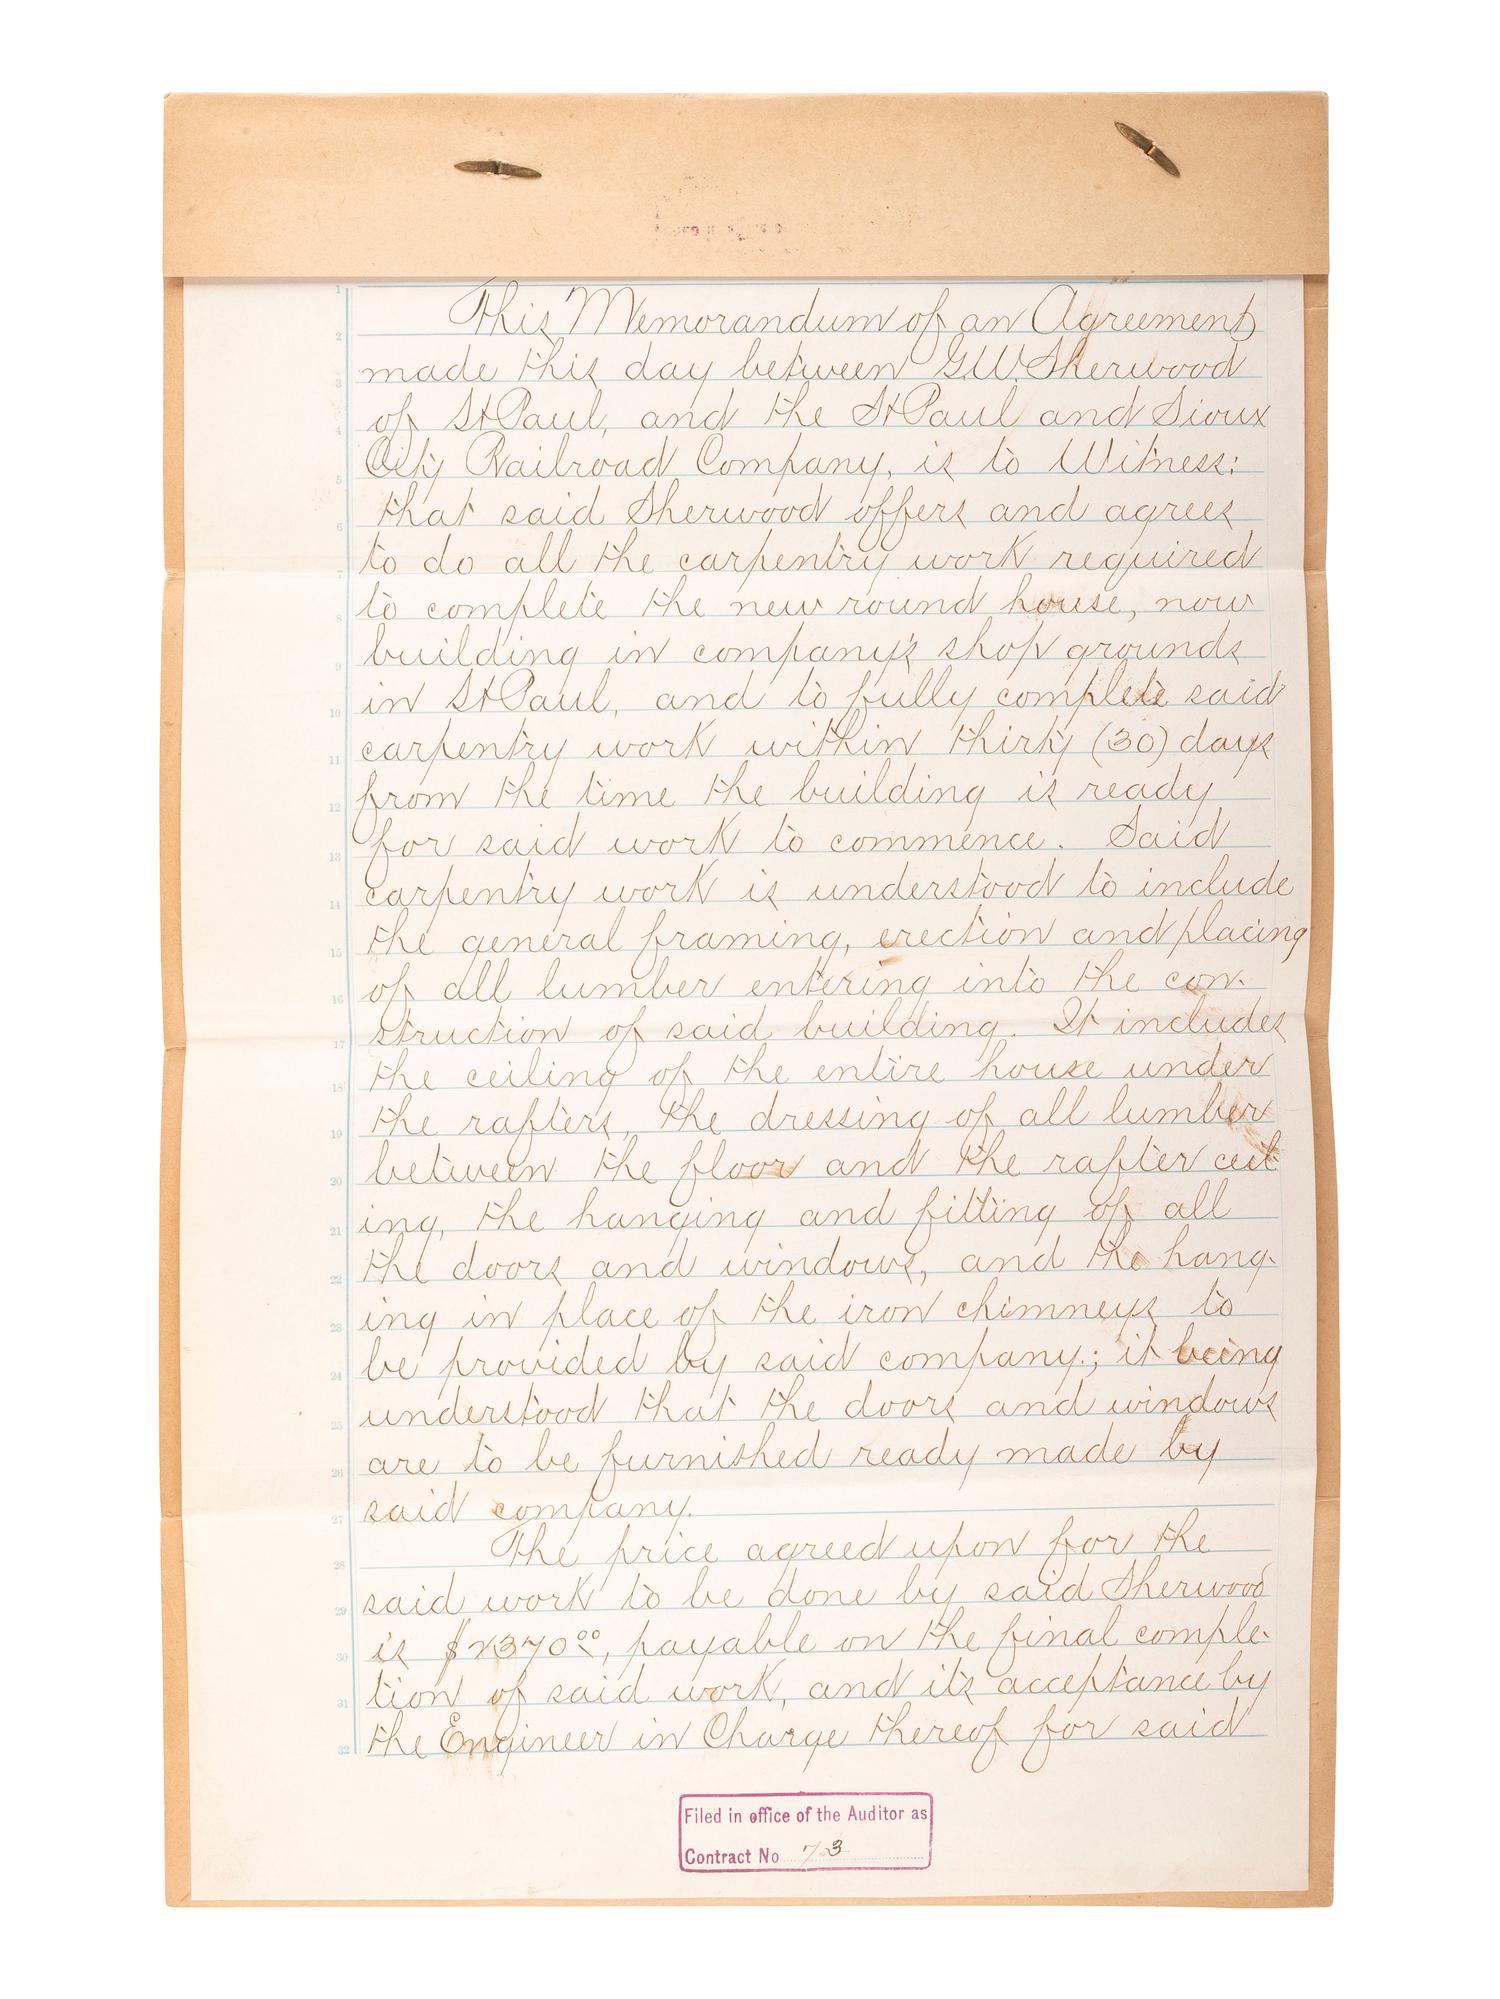 This Memorandum of an Agreement
made this day between G.W. Sherwood
of St Paul, and the St Paul and Sioux
City Railroad Company, is to Witness:
that said Sherwood offers and agrees
to do all the carpentry work required
to complete the new round house, now
building in company's shop grounds
in St Paul, and to fully complete said
carpentry work within thirty (30) days
from the time the building is ready
for said work to commence. Said
carpentry work is understood to include
the general framing, erection and placing
of all lumber entering into the con-
struction of said building. It includes
the ceiling of the entire house under
the rafters, the dressing of all lumber
between the floor and the rafter ceil-
ing, the hanging and fitting of all
the doors and windows, and the hang-
ing in place of the iron chimneys to
be provided by said company; it being
understood that the doors and windows
are to be furnished ready made by
said company.
The price agreed upon for the
said work to be done by said Sherwood
is $2370.00, payable on the final comple-
tion of said work, and its acceptance by
the Engineer in Charge thereof for said
Filed in office of the Auditor as
Contract No 73